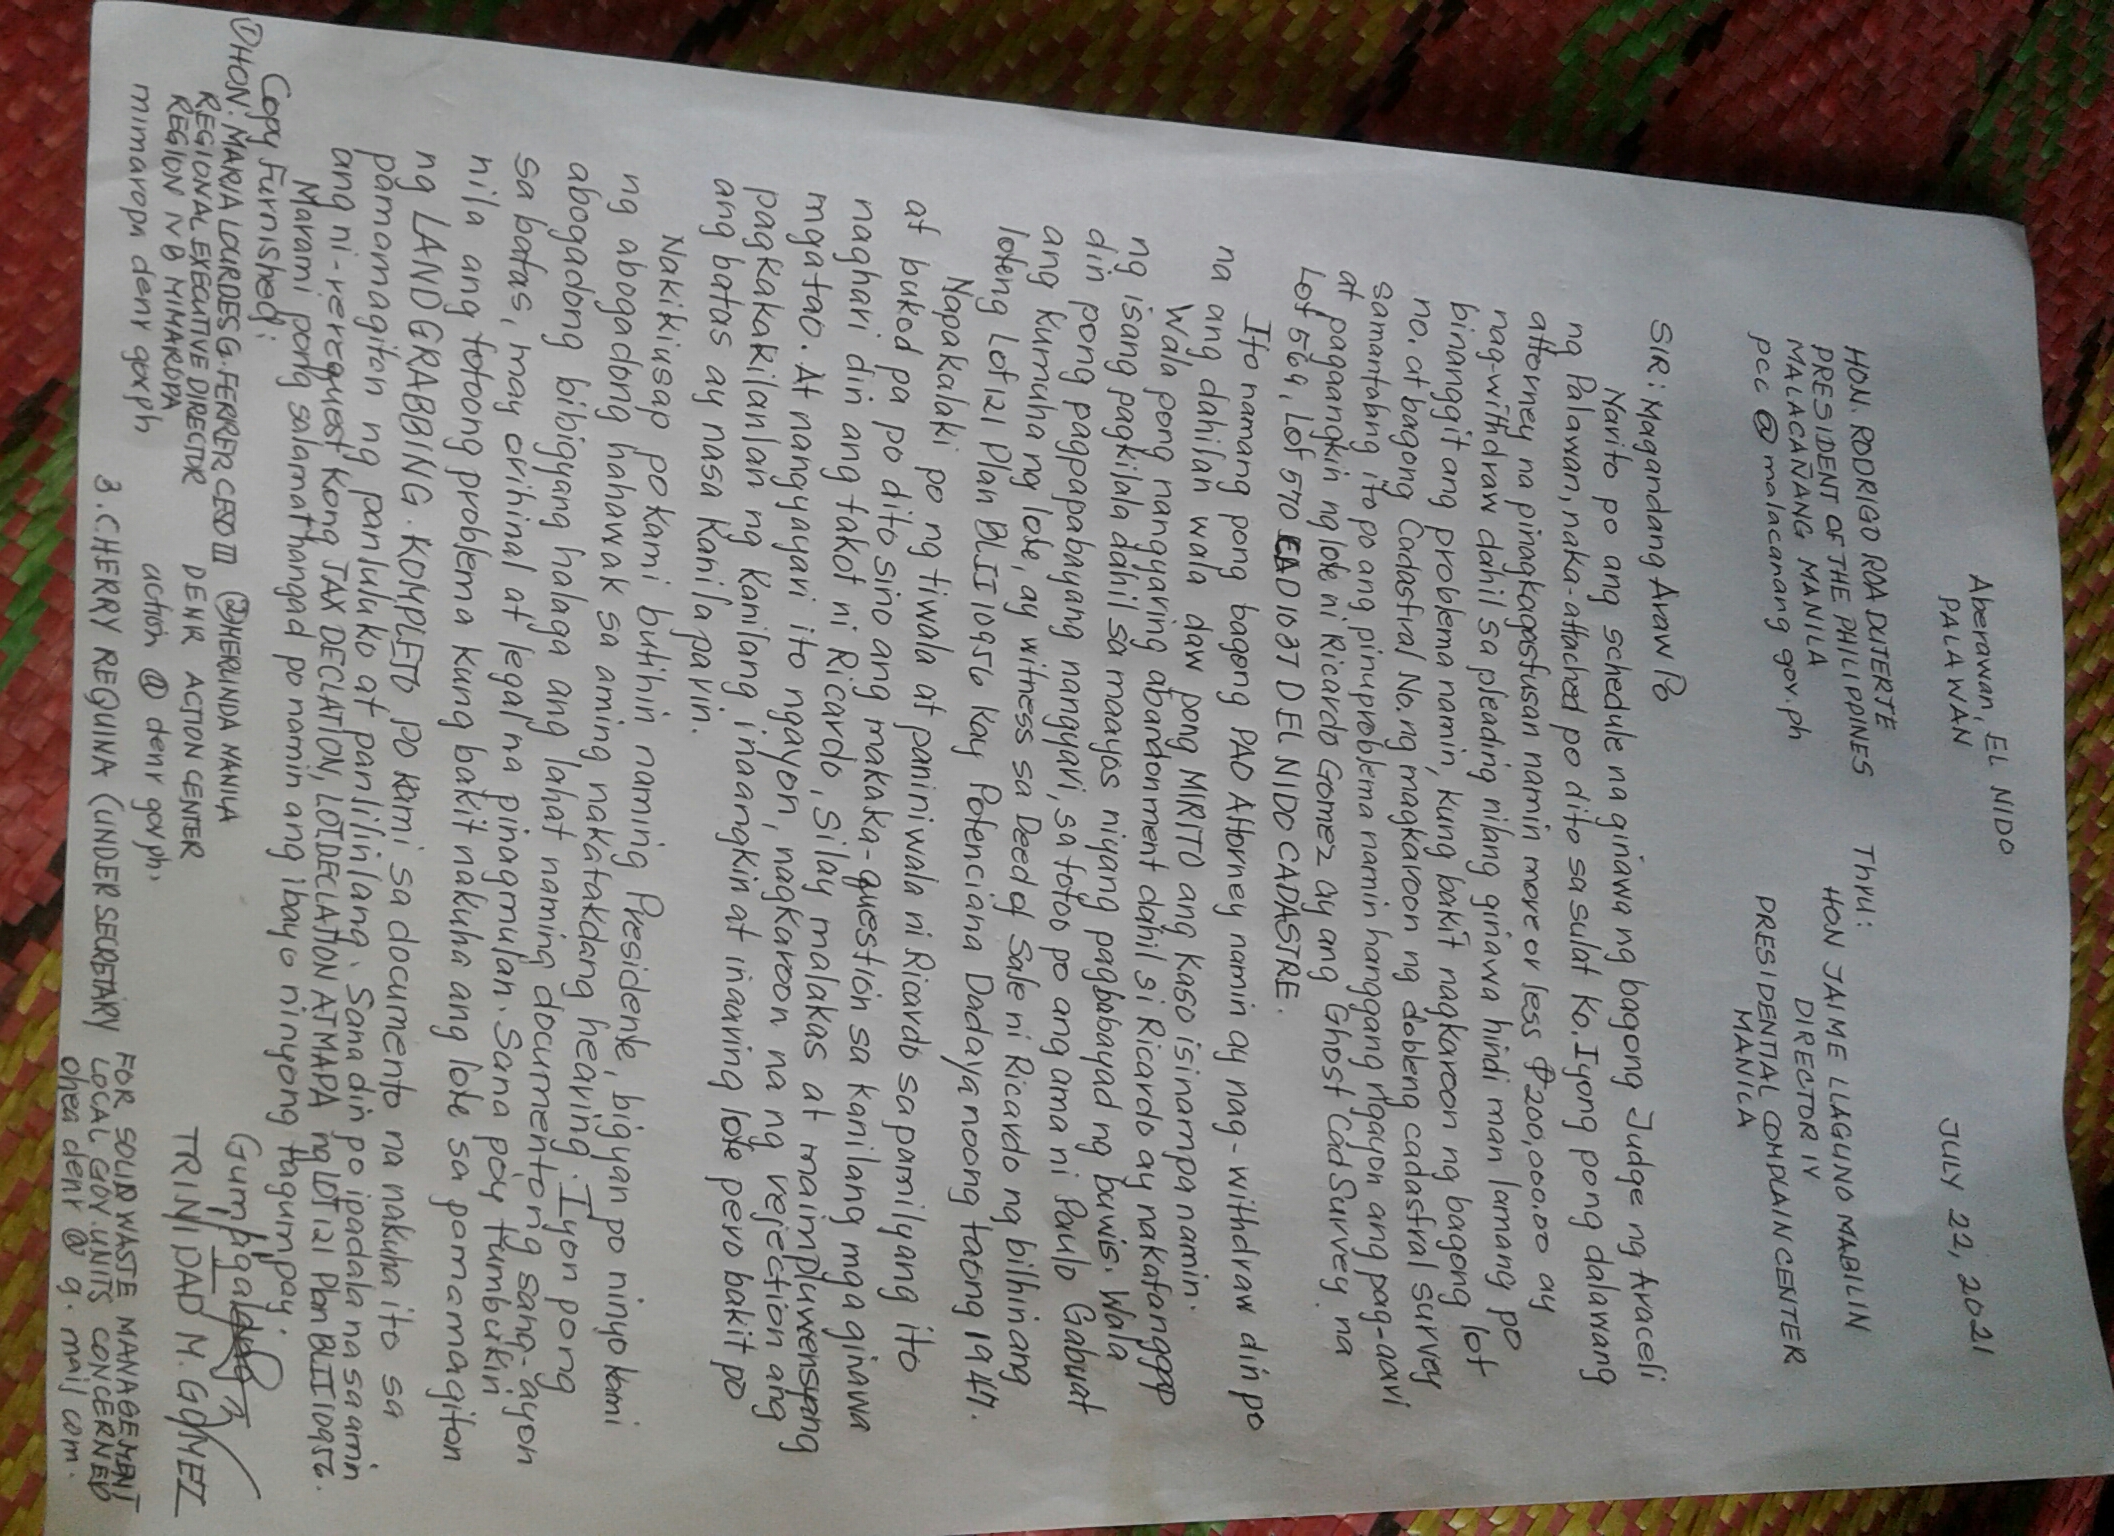 Aberawan, EL NIDO
PALAWAN
JULY 22, 2021
HON. RODRIGO ROA DUTERTE
PRESIDENT OF THE PHILIPPINES
MALACAÑANG MANILA
pcc @ malacanang gov.ph
Thru:
HON JAIME LLAGUNO MABILIN
DIRECTOR IV
PRESIDENTIAL COMPLAIN CENTER
MANILA
SIR: Magandang Araw Po
Narito po ang schedule na ginawa ng bagong Judge ng Araceli
ng Palawan, naka-attached po dito sa sulat ko. Iyong pong dalawang
attorney na pinagkagastusan namin more or less ₱200,000.00 ay
nag-withdraw dahil sa pleading nilang ginawa hindi man lamang po
binanggit ang problema namin, kung bakit nagkaroon ng bagong lot
no. at bagong Cadastral No. ng magkaroon ng dobleng cadastral survey
samantalang ito po ang pinuproblema namin hanggang ngayon ang pag-aari
at pagaangkin ng lote ni Ricardo Gomez ay ang Ghost Cad Survey na
Lot 569, Lot 570 CAD 1087 DEL NIDO CADASTRE.
Ito namang pong bagong PAO Attorney namin ay nag-withdraw din po
na ang dahilan wala daw pong MIRITO ang kaso isinampa namin.
Wala pong nangyaring abandonment dahil si Ricardo ay nakatanggap
ng isang pagkilala dahil sa maayos niyang pagbabayad ng buwis. Wala
din pong pagpapabayang nangyari, sa totoo po ang ama ni Paulo Gabuat
ang kumuha ng lote, ay witness sa Deed of Sale ni Ricardo ng bilhin ang
loteng Lot 121 Plan BLII 10956 kay Potenciana Dadaya noong taong 1947.
Napakalaki po ng tiwala at paniniwala ni Ricardo sa pamilyang ito
at bukod pa po dito sino ang makaka-question sa kanilang mga ginawa
naghari din ang takot ni Ricardo, Silay malakas at maimpluwensyang
mga tao. At nangyayari ito ngayon, nagkaroon na ng rejection ang
pagkakakilanlan ng kanilang inaangkin at inaaring lote pero bakit po
ang batas ay nasa kanila parin.
Nakikiusap po kami butihin naming Presidente, bigyan po ninyo kami
ng abogadong hahawak sa aming nakatakdang hearing. Iyon pong
abogadong bibigyang halaga ang lahat naming documentong sang-ayon
sa batas, may orihinal at legal na pinagmulan. Sana poy tumbukin
nila ang totoong problema kung bakit nakuha ang lote sa pamamagitan
ng LAND GRABBING. KOMPLETO po kami sa documento na nakuha ito sa
pamamagitan ng panluluko at panlilinlang. Sana din po ipadala na sa amin
ang ni-rerequest kong TAX DECLATION, LOT DECLATION AT MAPA ng LOT 121 Plan BLII 10956.
Marami pong salamat hangad po namin ang ibayo ninyong tagumpay.
Copy Furnished:
Gumagalang
TRINIDAD M. GOMEZ
① HON. MARIA LOURDES G. FERRER CESO III
REGIONAL EXECUTIVE DIRECTOR
REGION IV B MIMAROPA
mimaropa denr gov.ph
② MERLINDA MANILA
DENR ACTION CENTER
action @ denr gov ph.
3. CHERRY REQUINA (UNDER SECRETARY
FOR SOLID WASTE MANAGEMENT
LOCAL GOV. UNITS CONCERNED
ohea denr @ g. mail com.